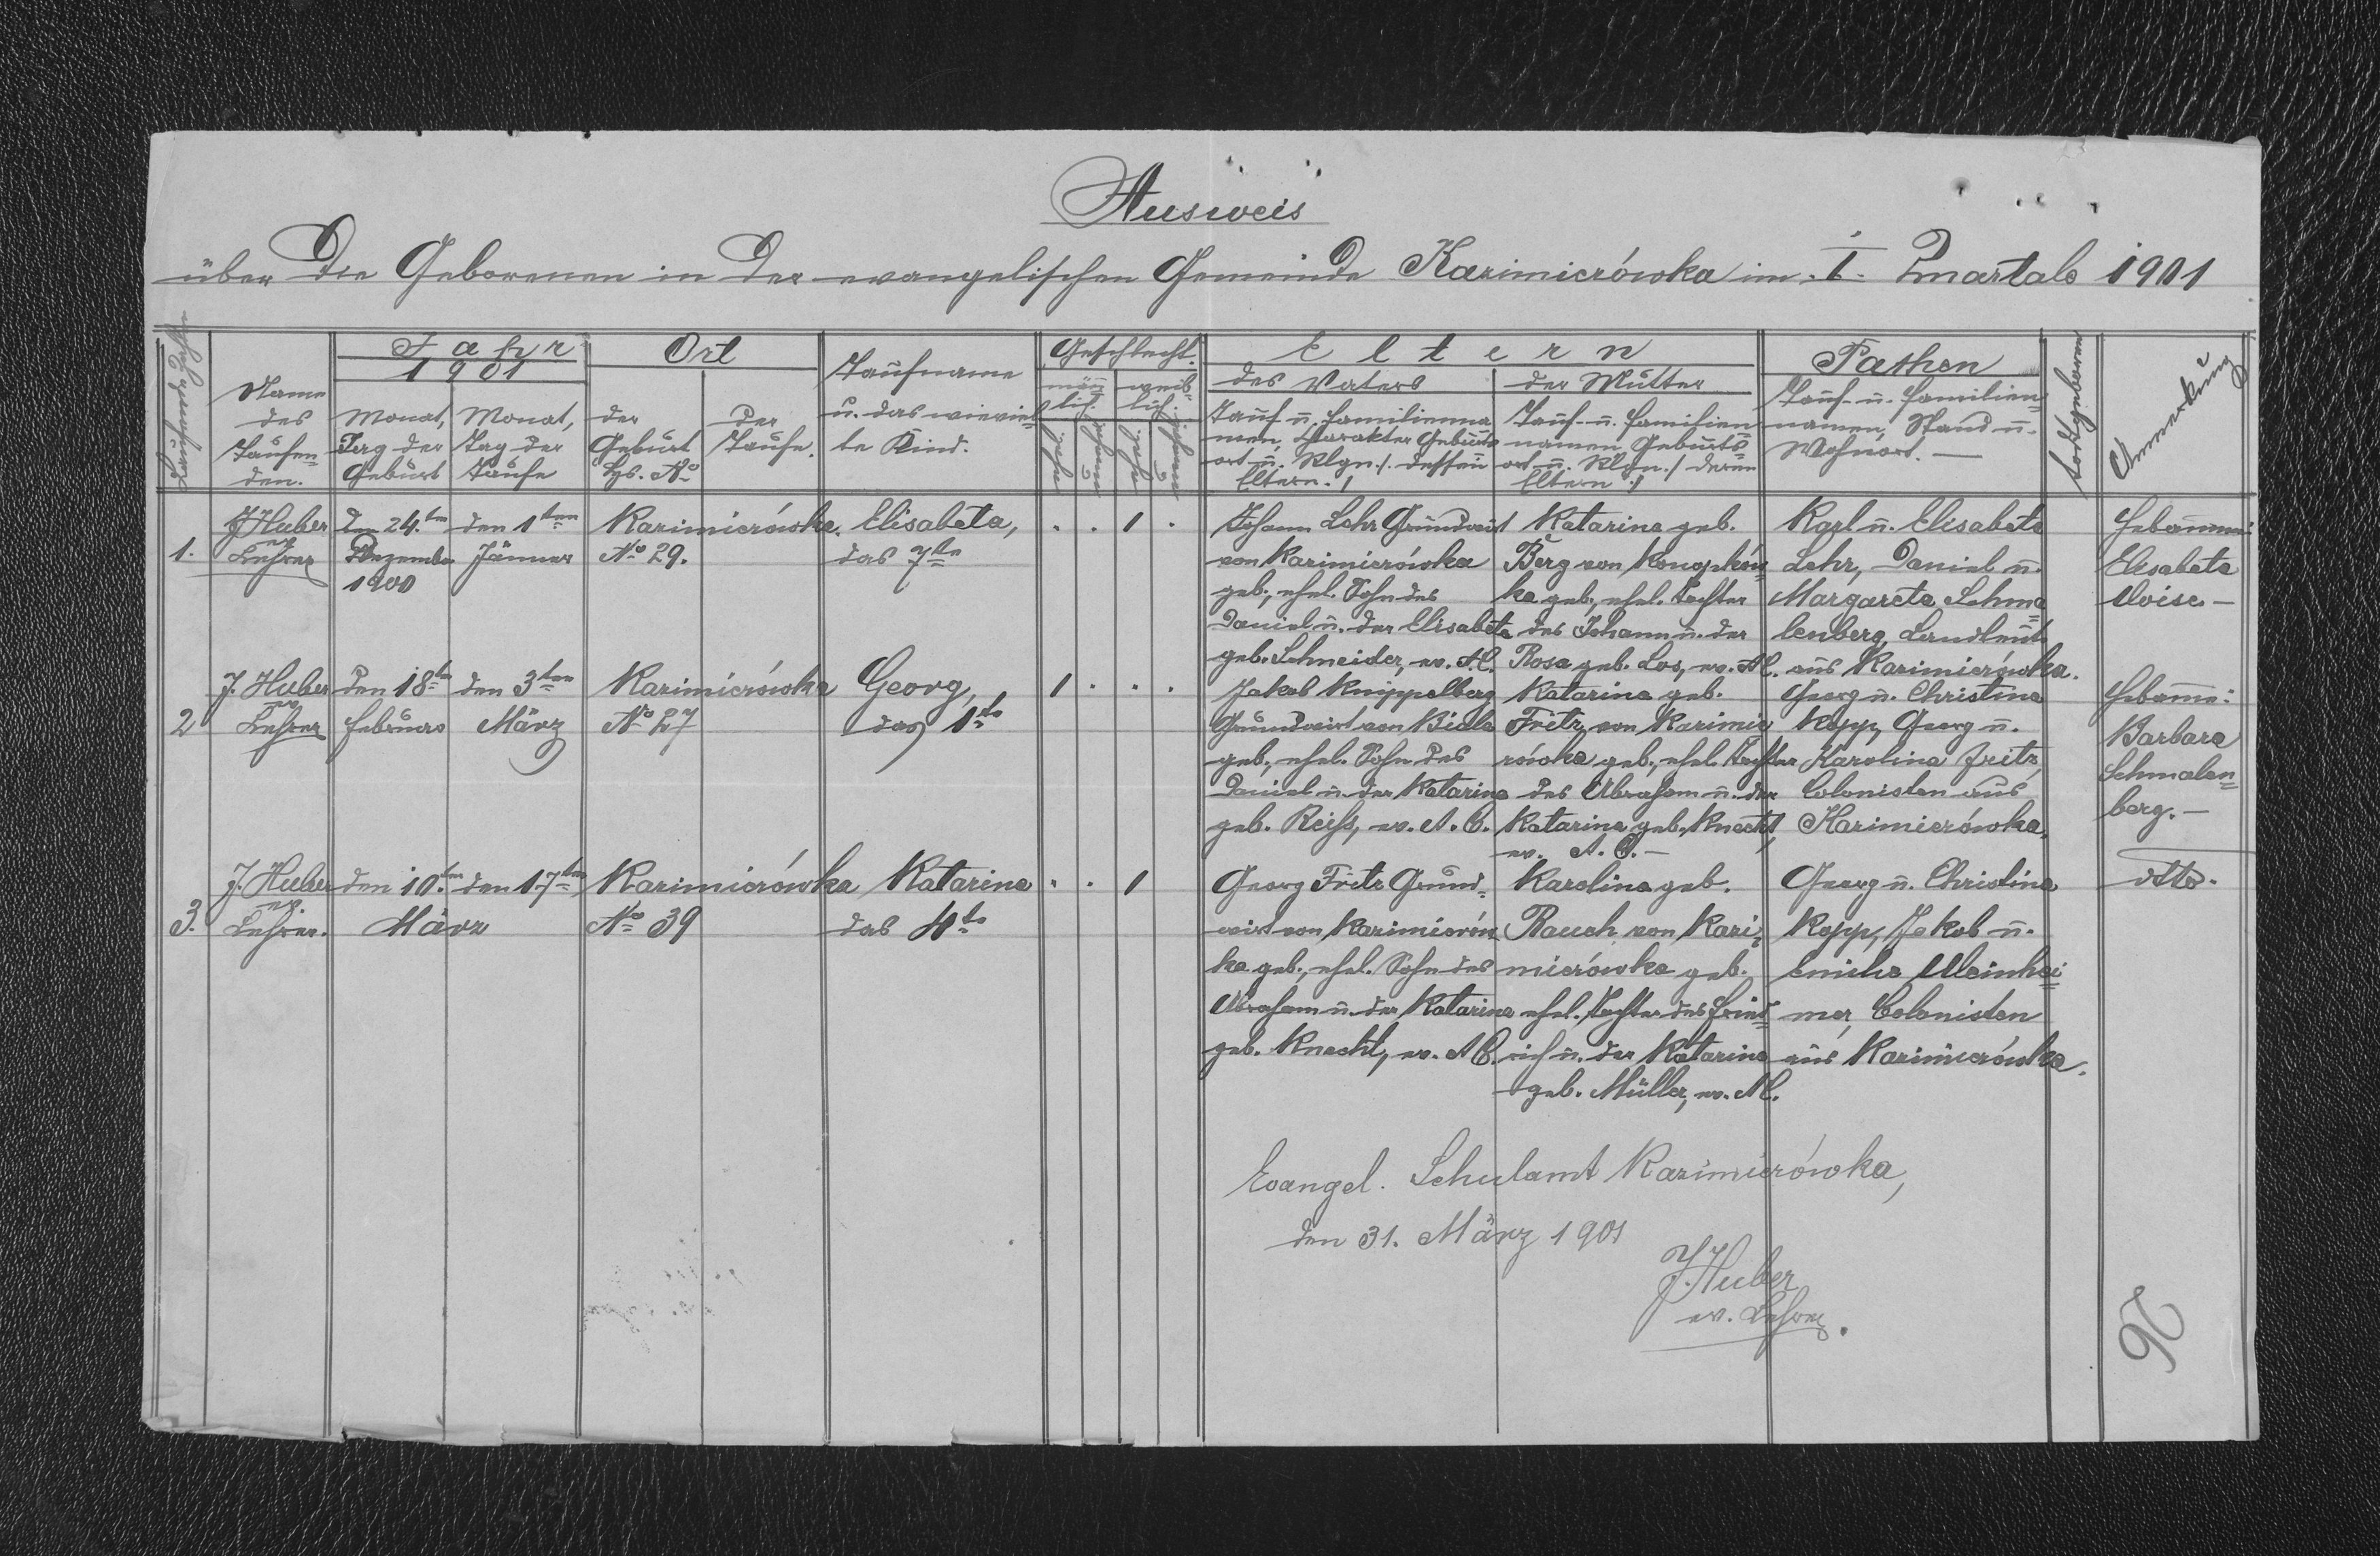 Ausweis
über die Geborenen in der evangelischen Gemeinde Kazimierówka im I. Quartale 1901
Name des Taufen= den.
Jahr 1901
Monat, Tag der Geburt
Monat, Tag der Taufe
Ort
der Geburt Hs. No
der Taufe.
Taufname u. das wieviel= te Kind.
Geschlecht.
männ= lich.
weib= lich.
Eltern
des Vaters
Tauf- u. Familienna= men, Charakter Geburts= ort u. Rlgn. /: dessen Eltern. :/
der Mutter
Tauf- u. Familien= namen, Geburts= ort u. Rlgn. /: deren Eltern :/
Pathen
Tauf- u. Familien= namen, Stand u. Wohnort. —
todtgeboren
Anmerkung
1.
J. Huber ev. Lehrer
den 24.ten Dezember 1900
den 1ten Jänner
Kazimierówka. No 29.
Elisabeta, das 7te
. . 1 .
Johann Lehr Grundwirt
von Kazimierówka
geb., ehel. Sohn des
Daniel u. der Elisabeta
geb. Schneider, ev. A.C.
Katarina geb.
Berg von Konopków=
ka geb., ehel. Tochter
des Johann u. der
Rosa geb. Los, ev. AC.
Karl u. Elisabeta
Lehr, Daniel u.
Margareta Schma=
lenberg, Landleute
aus Kazimierówka.
Hebamme:
Elisabeta
Moise. —
2
J. Huber ev. Lehrer
den 18ten Februar
den 3ten März
Kazimierówka No 27
Georg, das 1te
1 . . .
Jakob Knippelberg
Grundwirt von Biała
geb., ehel. Sohn des
Daniel u. der Katarina
geb. Reiß, ev. A.C.
Katarina geb.
Fritz von Kazimie
rówka geb., ehel. Tochter
des Abraham u. der
Katarina geb. Knecht,
ev. A.C. —
Georg u. Christina
Kopp, Georg u.
Karolina Fritz,
Colonisten aus
Kazimierówka.
Hebamme:
Barbara
Schmalen=
berg. —
3.
J. Huber ev. Lehrer.
den 10.ten März
den 17ten
Kazimierówka No 39
Katarina das 4te
. . 1
Georg Fritz Grund=
wirt von Kazimierów=
ka geb., ehel. Sohn des
Abraham u. der Katarina
geb. Knecht, ev. AC.
Karolina geb.
Bauch von Kazi=
mierówka geb.
ehel. Tochter des Fried=
rich u. der Katarina
geb. Müller, ev. AC.
Georg u. Christina
Kopp, Jakob u.
Emilie Kleinhei=
mer, Colonisten
aus Kazimierówka.
dtto.
Evangel. Schulamt Kazimierówka,
den 31. März 1901
J. Huber
ev. Lehrer.